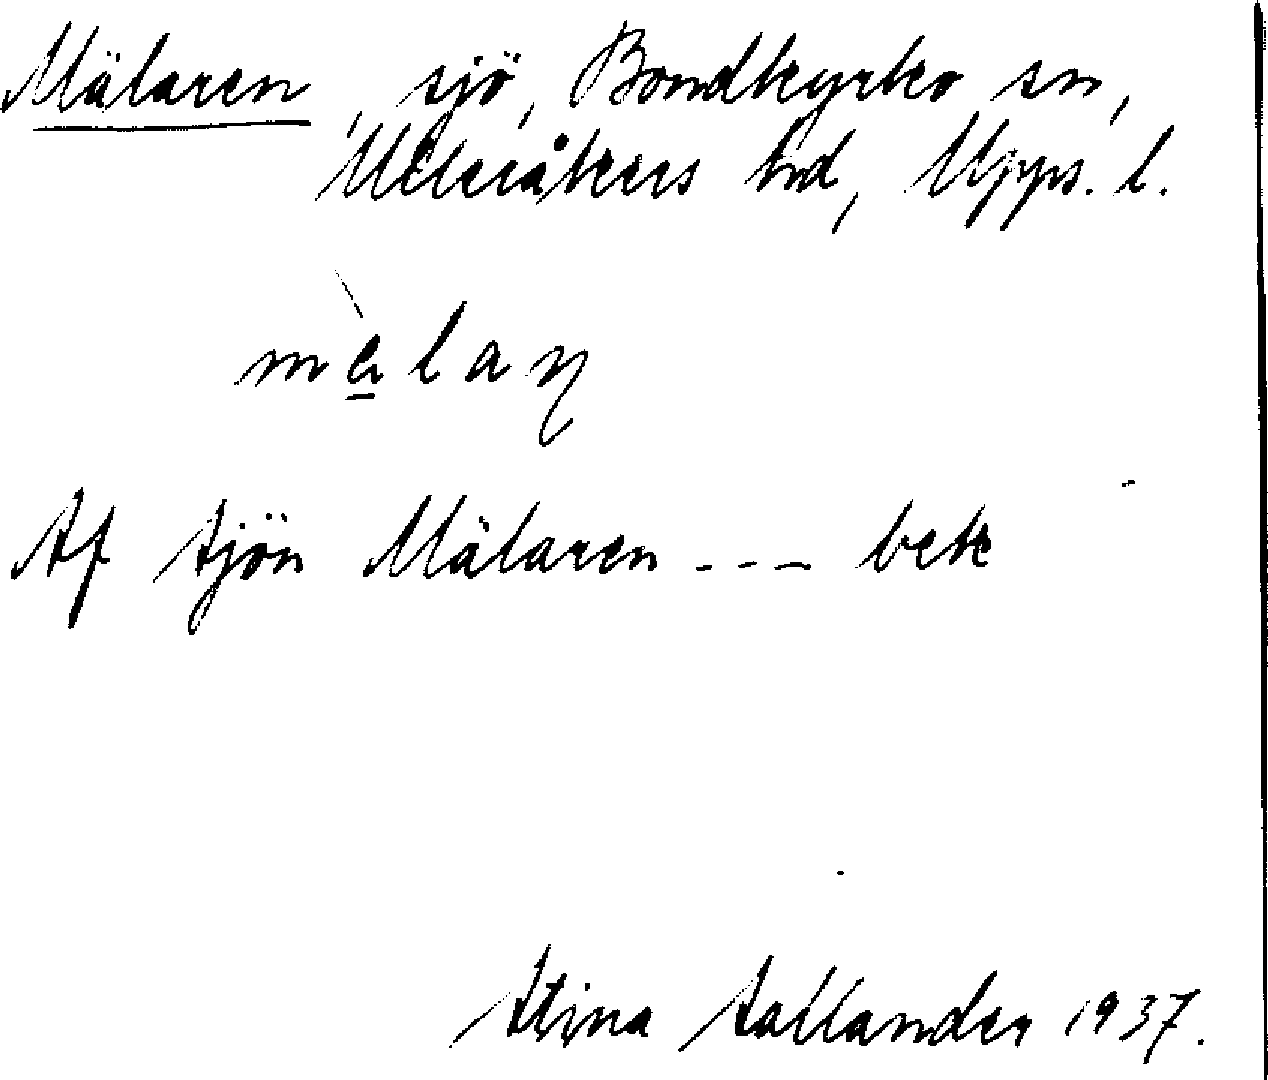 Mälaren, sjö, Bondkyrko sn,
Ulleråkers hd, Upps. l.
mὰ̠laņ
Af sjön Mälaren - - - bek
Stina Sallander 1937.